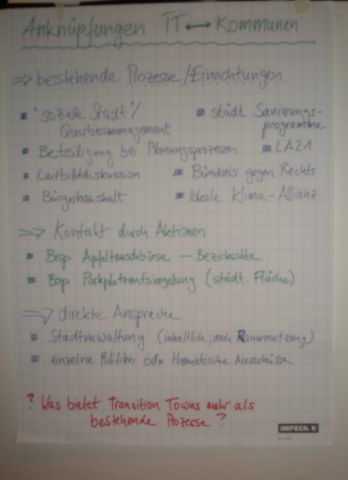 Anknüpfungen TT ↔ Kommunen
⇒ bestehende Prozesse/Einrichtungen
▪ "soziale Stadt"/ Quartiersmanagement
▪ städt Sanierungs-programme
▪ Beteiligung bei Planungsprozessen
▪ LA21
▪ Leitbilddiskussion
▪ Bündnis gegen Rechts
▪ Bürgerhaushalt
▪ lokale Klima-Allianz
⇒ Kontakt durch Aktionen
▪ Bsp Apfeltauschbörse — Bezirksräte
▪ Bsp Parkplatzentsiegelung (städt. Fläche)
⇒ direkte Ansprache
▪ Stadtverwaltung (inhaltlich, auch Raumnutzung)
▪ einzelne Politiker oder thematische Ausschüsse
? Was bietet Transition Towns mehr als
bestehende Prozesse ?
IMPEGA